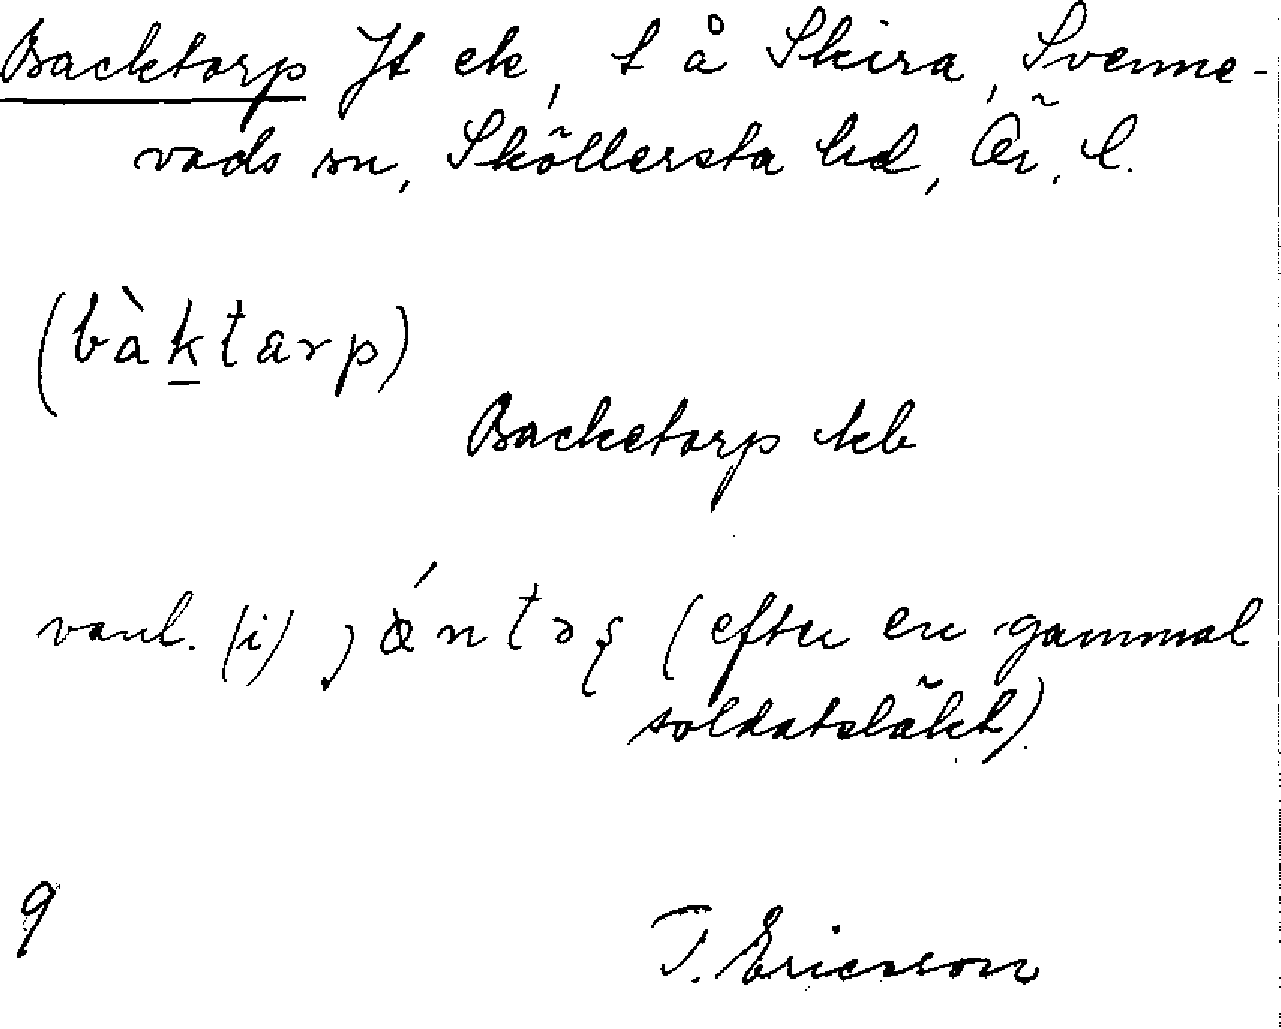 Backtorp Jt ek, t å Skira, Svenne-
vads sn, Sköllersta hd, Ör. l.
(bàktarp)
Backetorp kb
vanl. (i) (efter en gammal
soldatsläkt)
9
T. Ericsson